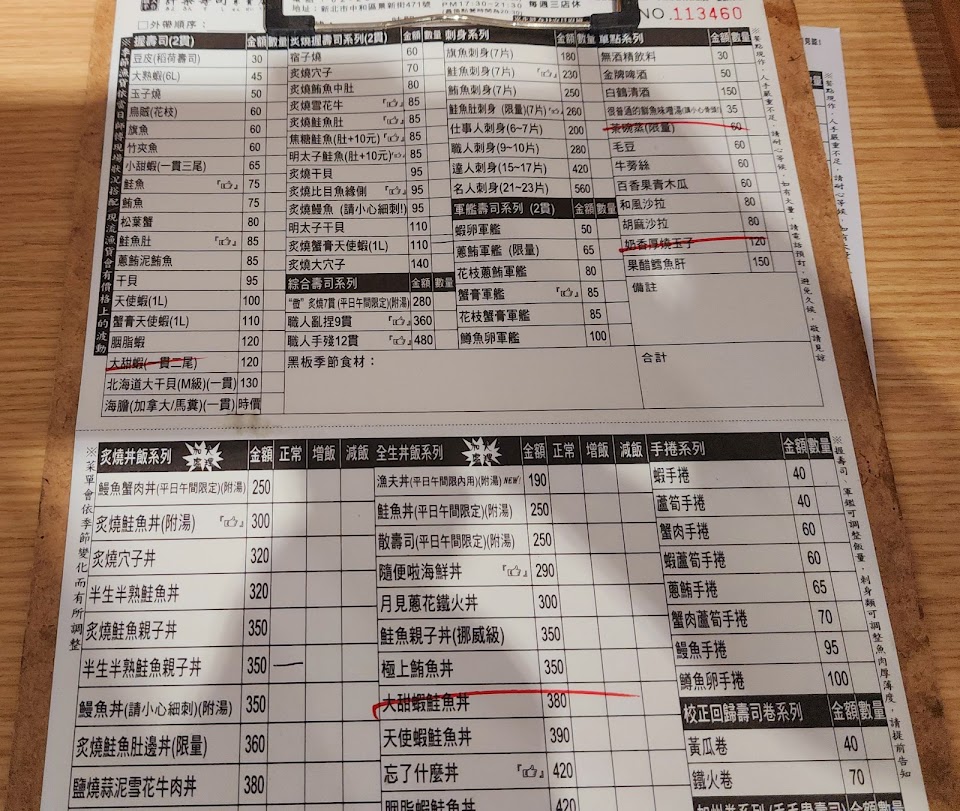 新北市中和區景新街471號
PM17:30-21:30 每週三店休
NO.113460
□外帶順序：
握壽司(2貫) 金額 數量
豆皮(稻荷壽司) 30
大熟蝦(6L) 45
玉子燒 50
烏賊(花枝) 60
旗魚 60
竹夾魚 60
小甜蝦(一貫三尾) 65
鮭魚 『👍』 75
鮪魚 75
松葉蟹 80
鮭魚肚 『👍』 85
蔥鮪泥鮪魚 85
干貝 95
天使蝦(1L) 100
蟹膏天使蝦(1L) 110
胭脂蝦 120
大甜蝦(一貫二尾) 120
北海道大干貝(M級)(一貫) 130
海膽(加拿大/馬糞)(一貫) 時價
炙燒握壽司系列(2貫) 金額 數量
宿子燒 60
炙燒穴子 70
炙燒鮪魚中肚 80
炙燒雪花牛 『👍』 85
炙燒鮭魚肚 『👍』 85
焦糖鮭魚(肚+10元) 『👍』 85
明太子鮭魚(肚+10元) 『👍』 85
炙燒干貝 95
炙燒比目魚緣側 『👍』 95
炙燒鰻魚 (請小心細刺!) 95
明太子干貝 110
炙燒蟹膏天使蝦(1L) 110
炙燒大穴子 140
綜合壽司系列 金額 數量
"微"炙燒7貫 (平日午間限定)(附湯) 280
職人亂捏9貫 『👍』 360
職人手殘12貫 『👍』 480
黑板季節食材：
刺身系列 金額 數量
旗魚刺身(7片) 180
鮭魚刺身(7片) 『👍』 230
鮪魚刺身(7片) 230
鮭魚肚刺身 (限量)(7片) 『👍』 260
仕事人刺身(6~7片) 200
職人刺身(9~10片) 280
達人刺身(15~17片) 420
名人刺身(21~23片) 560
軍艦壽司系列 (2貫) 金額 數量
蝦卵軍艦 50
蔥鮪軍艦 (限量) 65
花枝蔥鮪軍艦 80
蟹膏軍艦 『👍』 85
花枝蟹膏軍艦 85
鱒魚卵軍艦 100
單點系列 金額 數量
無酒精飲料 30
金牌啤酒 50
白鶴清酒 150
很普通的鮮魚味噌湯(請小心魚刺!) 35
茶碗蒸(限量) 60
毛豆 60
牛蒡絲 60
百香果青木瓜 60
和風沙拉 80
胡麻沙拉 80
奶香厚燒玉子 120
果醋鱈魚肝 150
備註
合計
炙燒丼飯系列 金額 正常 增飯 減飯
鰻魚蟹肉丼(平日午間限定)(附湯) 250
炙燒鮭魚丼(附湯) 『👍』 300
炙燒穴子丼 320
半生半熟鮭魚丼 320
炙燒鮭魚親子丼 350
半生半熟鮭魚親子丼 350 一
鰻魚丼(請小心細刺)(附湯) 350
炙燒鮭魚肚邊丼(限量) 360
鹽燒蒜泥雪花牛肉丼 380
全生丼飯系列 金額 正常 增飯 減飯
漁夫丼(平日午間限內用)(附湯) NEW! 190
鮭魚丼(平日午間限定)(附湯) 250
散壽司(平日午間限定)(附湯) 250
隨便啦海鮮丼 『👍』 290
月見蔥花鐵火丼 300
鮭魚親子丼(挪威級) 350
極上鮪魚丼 350
大甜蝦鮭魚丼 380
天使蝦鮭魚丼 390
忘了什麼丼 『👍』 420
胭脂蝦鮭魚丼 420
手捲系列 金額 數量
蝦手捲 40
蘆筍手捲 40
蟹肉手捲 60
蝦蘆筍手捲 60
蔥鮪手捲 65
蟹肉蘆筍手捲 70
鰻魚手捲 95
鱒魚卵手捲 100
校正回歸壽司卷系列 金額 數量
黃瓜卷 40
鐵火卷 70
※菜單會依季節變化而有所調整
※握壽司、軍艦可調整飯量，刺身類可調整魚肉厚薄度，請提前告知
※餐點現作，人手嚴重不足，請耐心等候，如有大量，請電話預訂，避免久候，敬請見諒